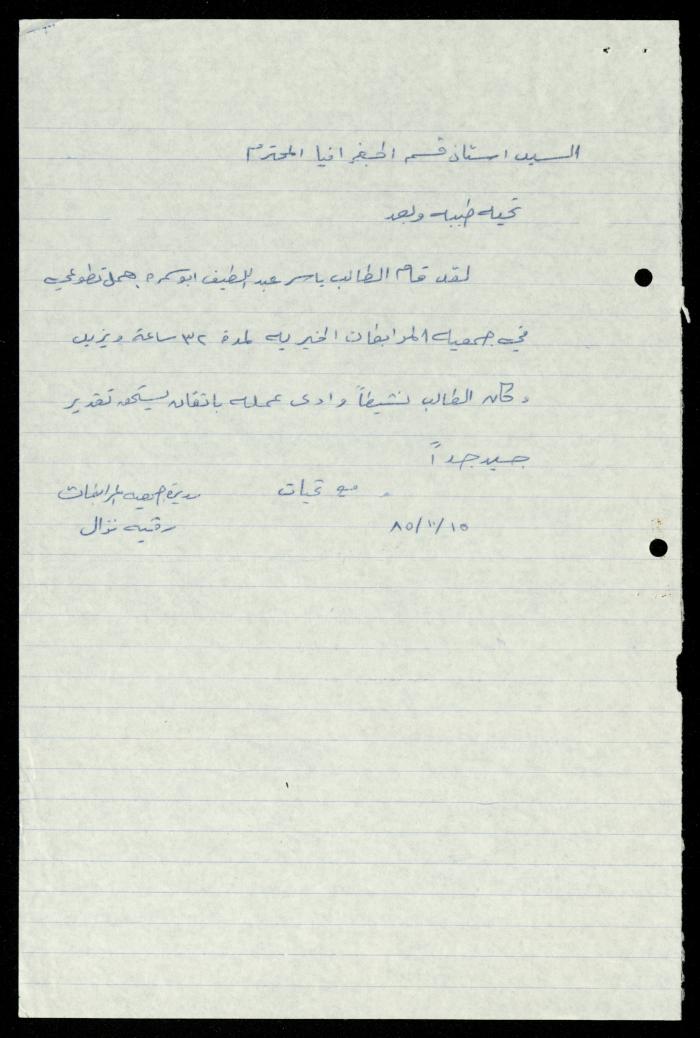 السيد استاذ قسم الجغرافيا المحترم
تحيه طيبه وبعد
لقد قام الطالب ياسر عبد اللطيف ابو سمره بعمل تطوعي
في جمعيه المرابطات الخيريه لمدة ٣٢ ساعة ويزيد
وكان الطالب نشيطاً وادى عمله باتقان يستحق تقدير
جيد جداً
مع تحيات مديرة جمعيه المرابطات
٨٥/١٠/١٥ رقيه نزال